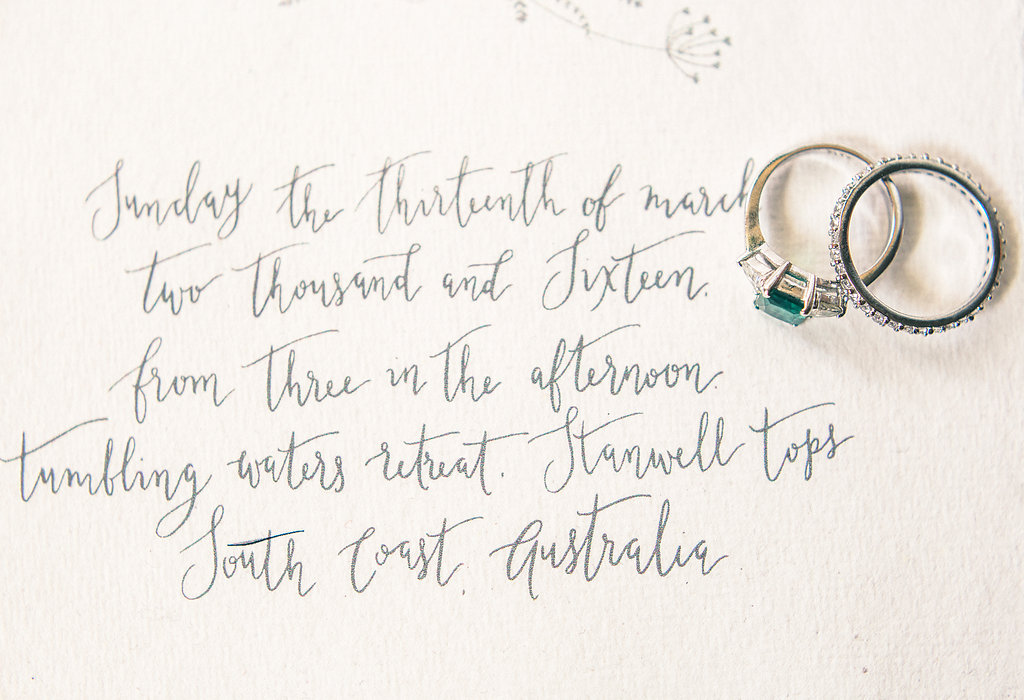 Sunday the thirteenth of march
two thousand and Sixteen.
from three in the afternoon.
tumbling waters retreat. Stanwell tops
South Coast, Australia